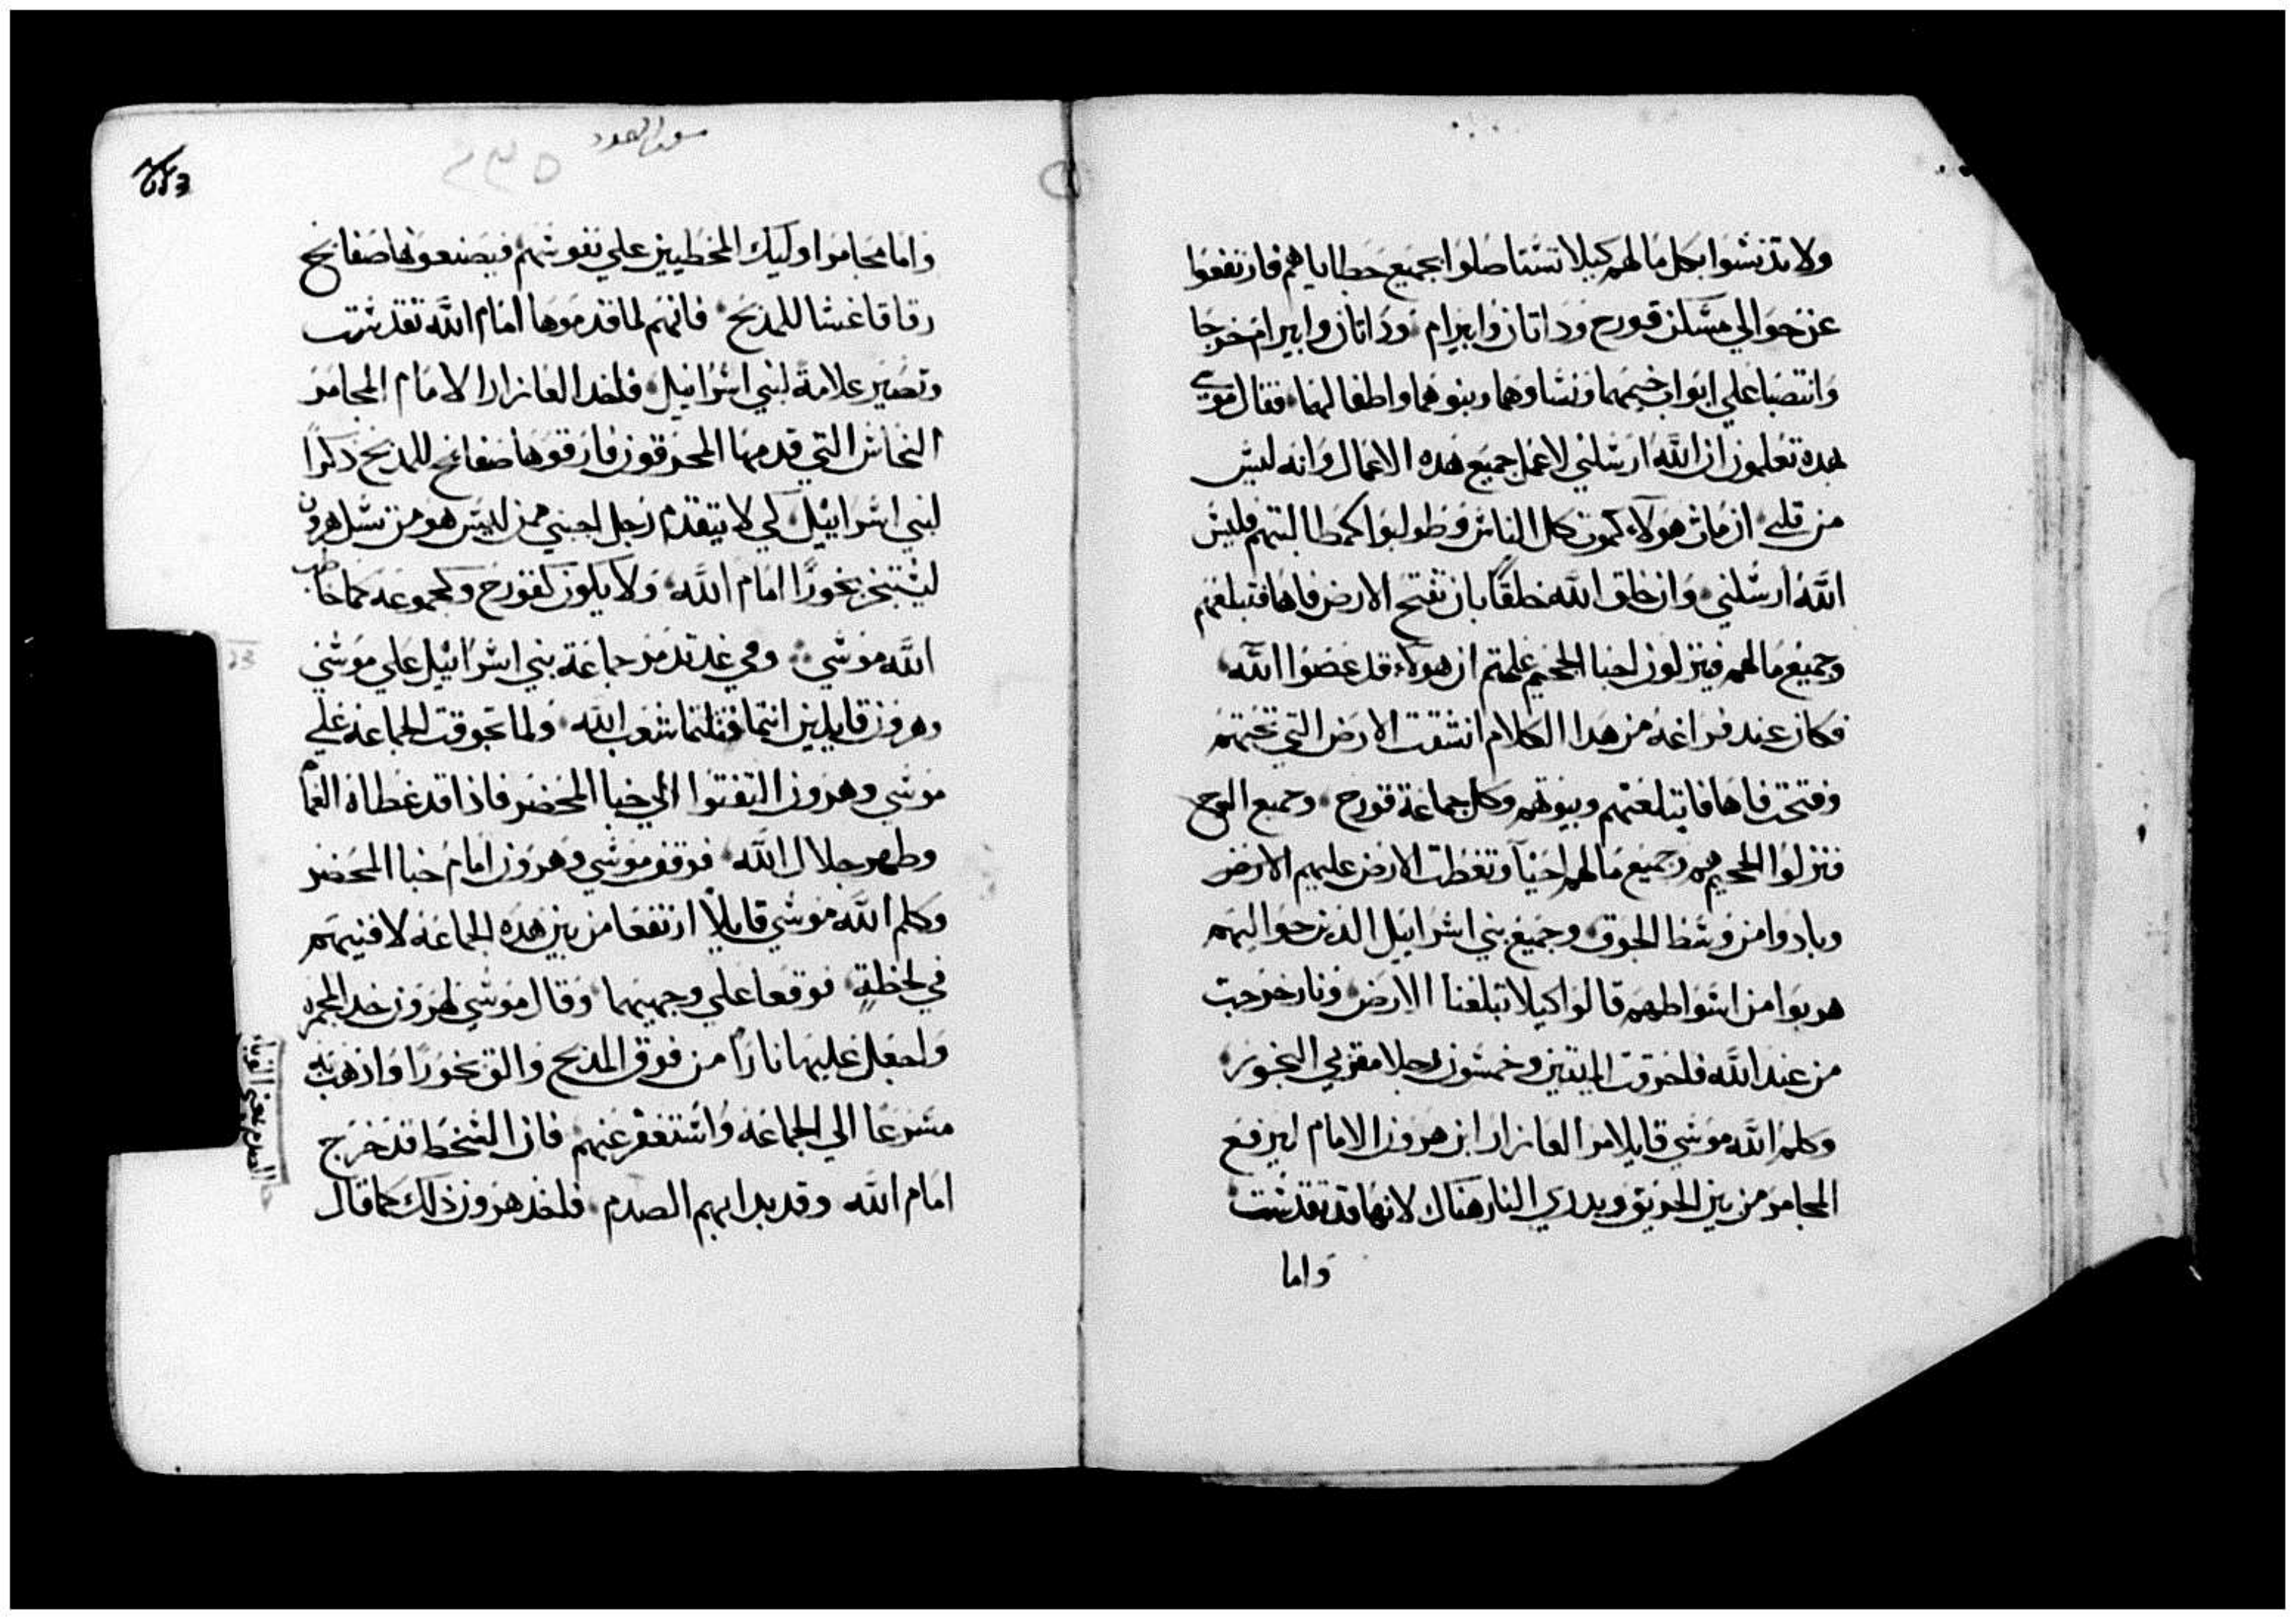 ولا تدنسوا بكل مالهم كيلا تستاصلوا بجميع خطاياهم فارتفعوا
عن حوالي مسكن قورح وداتان وابيرام وداتان وابيرام خرجا
وانتصبا علي ابواب خيمهما ونساوهما وبنوهما واطفالهما فقال موسي
بهده تعلمون ان الله ارسلني لاعمل جميع هده الاعمال وانه ليس
من قلبي ان مات هولاء كموت كل الناس وطولبوا كمطالبتهم فليس
الله ارسلني وان خلق الله خلقًا بان تفتح الارض فاها فتبلعهم
وجميع مالهم فينزلون احيا الجحيم علمتم ان هولاء قد عصوا الله
فكان عند فراغه من هدا الكلام انشقت الارض التي تحتهم
وفتحت فاها فابتلعتهم وبيوتهم وكل جماعة قورح وجميع السرح
فنزلوا الجحيم هم وجميع مالهم احيآ وتغطت الارض عليهم الارض
وبادوا من وسط الجوق وجميع بني اسرايل الدين حواليهم
هربوا من اصواطهم قالوا كيلا تبلعنا الارض ونار خرجت
من عند الله فاحرقت الميتين وخمسون رجلا مقربي البخور
وكلم الله موسي قايلا مر العازار ابن هرون الامام ليرفع
المجامر من بين الحريق ويدري النار هناك لانها قد تقدست
واما
سفر العدد
٢٣٥
واما مجامر اوليك المخطيين علي نفوسهم فيصنعونها صفايح
رقاقا غشا للمدبح فانهم لما قدموها امام الله تقدست
وتصير علامة لبني اسراييل فاخد العازار الامام المجامر
النحاس التي قدمها المحرقون فارقوها صفايح للمدبح دكرًا
لبني اسراييل لكي لا يتقدم رجل اجنبي ممن ليس هو من نسل هرون
ليبتخر بخورًا امام الله ولا يكون كقورح وكجموعه كما خاطب
الله موسي وفي غد تدمر جماعة بني اسراييل علي موسي
وهرون قايلين انتما قتلتما شعب الله ولما تجوقت الجماعه علي
موسي وهرون التفتوا الي خبا المحضر فاذا قد غطاه الغمام
وظهر جلال الله فوقف موسي وهرون امام خبا المحضر
وكلم الله موسي قايلاً ارتفعا من بين هده الجماعه لافنيهم
في لحظةٍ فوقعا علي وجهيهما وقال موسي لهرون خد المجمره
واجعل عليها نارًا من فوق المدبح والق بخورًا واذهب به
مسرعًا الي الجماعه واستغفر عنهم فان السخط قد خرج
امام الله وقد بدا بهم الصدم فاخد هرون ذلك كما قال